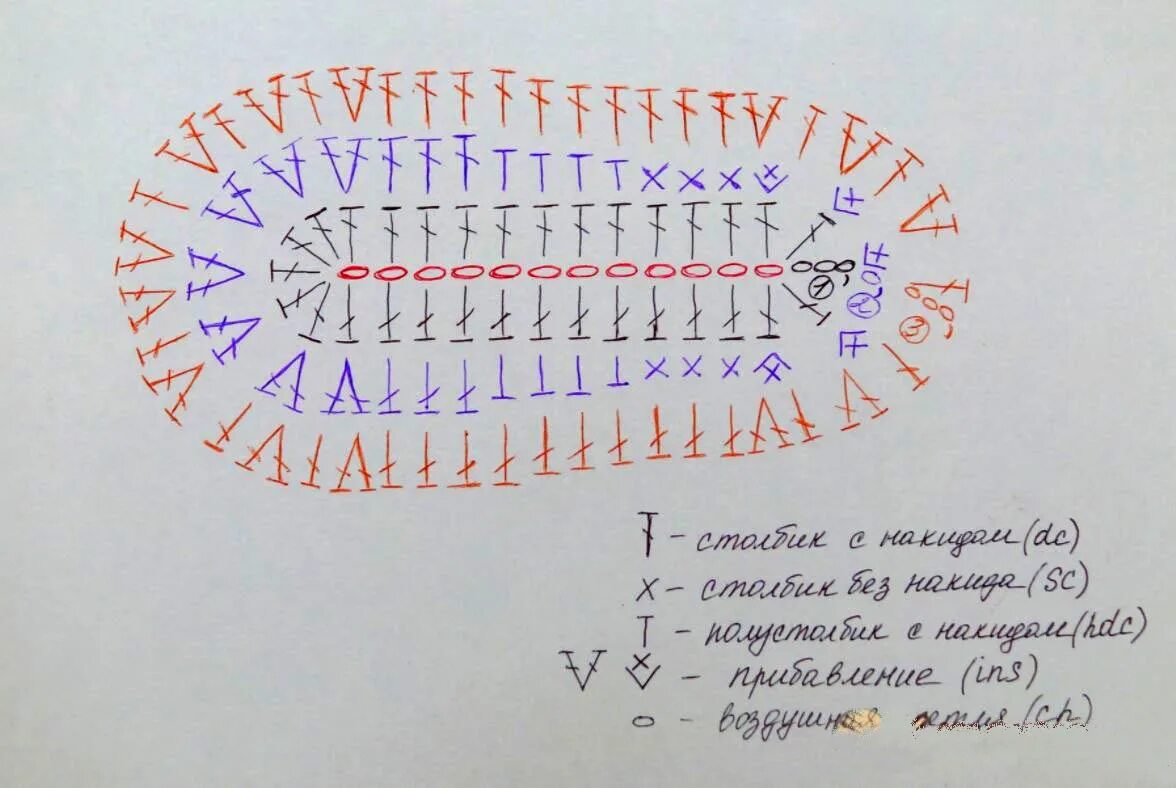 1
2
3
столбик с накидом (dc)
х – столбик без накида (sc)
полустолбик с накидом (hdc)
– прибавление (ins)
– воздушная петля (ch)